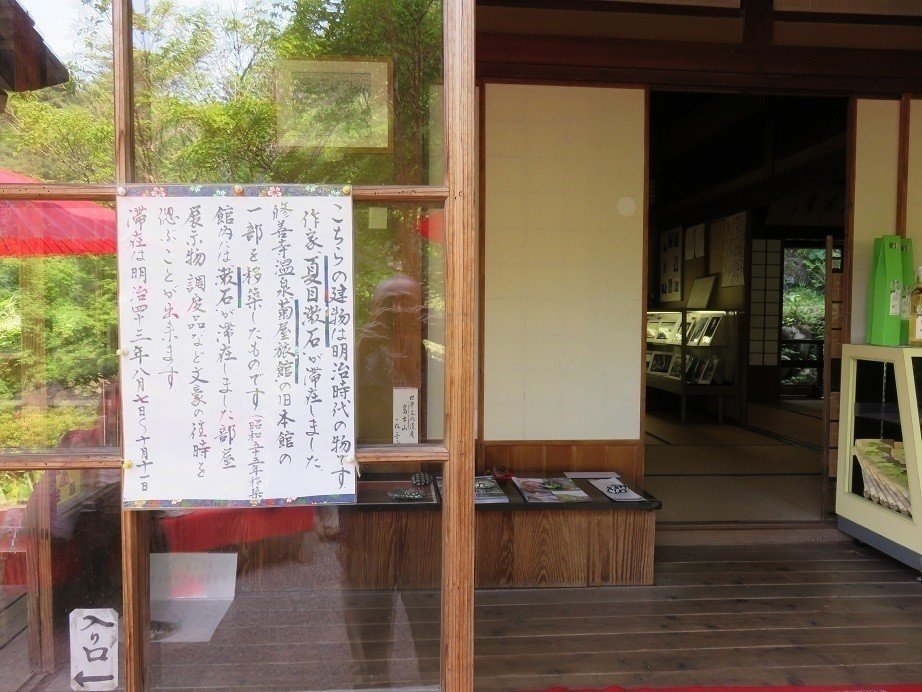 こちらの建物は明治時代の物です
作家夏目漱石が滞在しました
修善寺温泉菊屋旅館の旧本館の
一部を移築したものです(昭和五十五年移築
館内は漱石が滞在しました部屋
展示物調度品など文豪の往時を
偲ぶことが出来ます
滞在は明治四十三年八月七日〜十月十一日
入り口
←